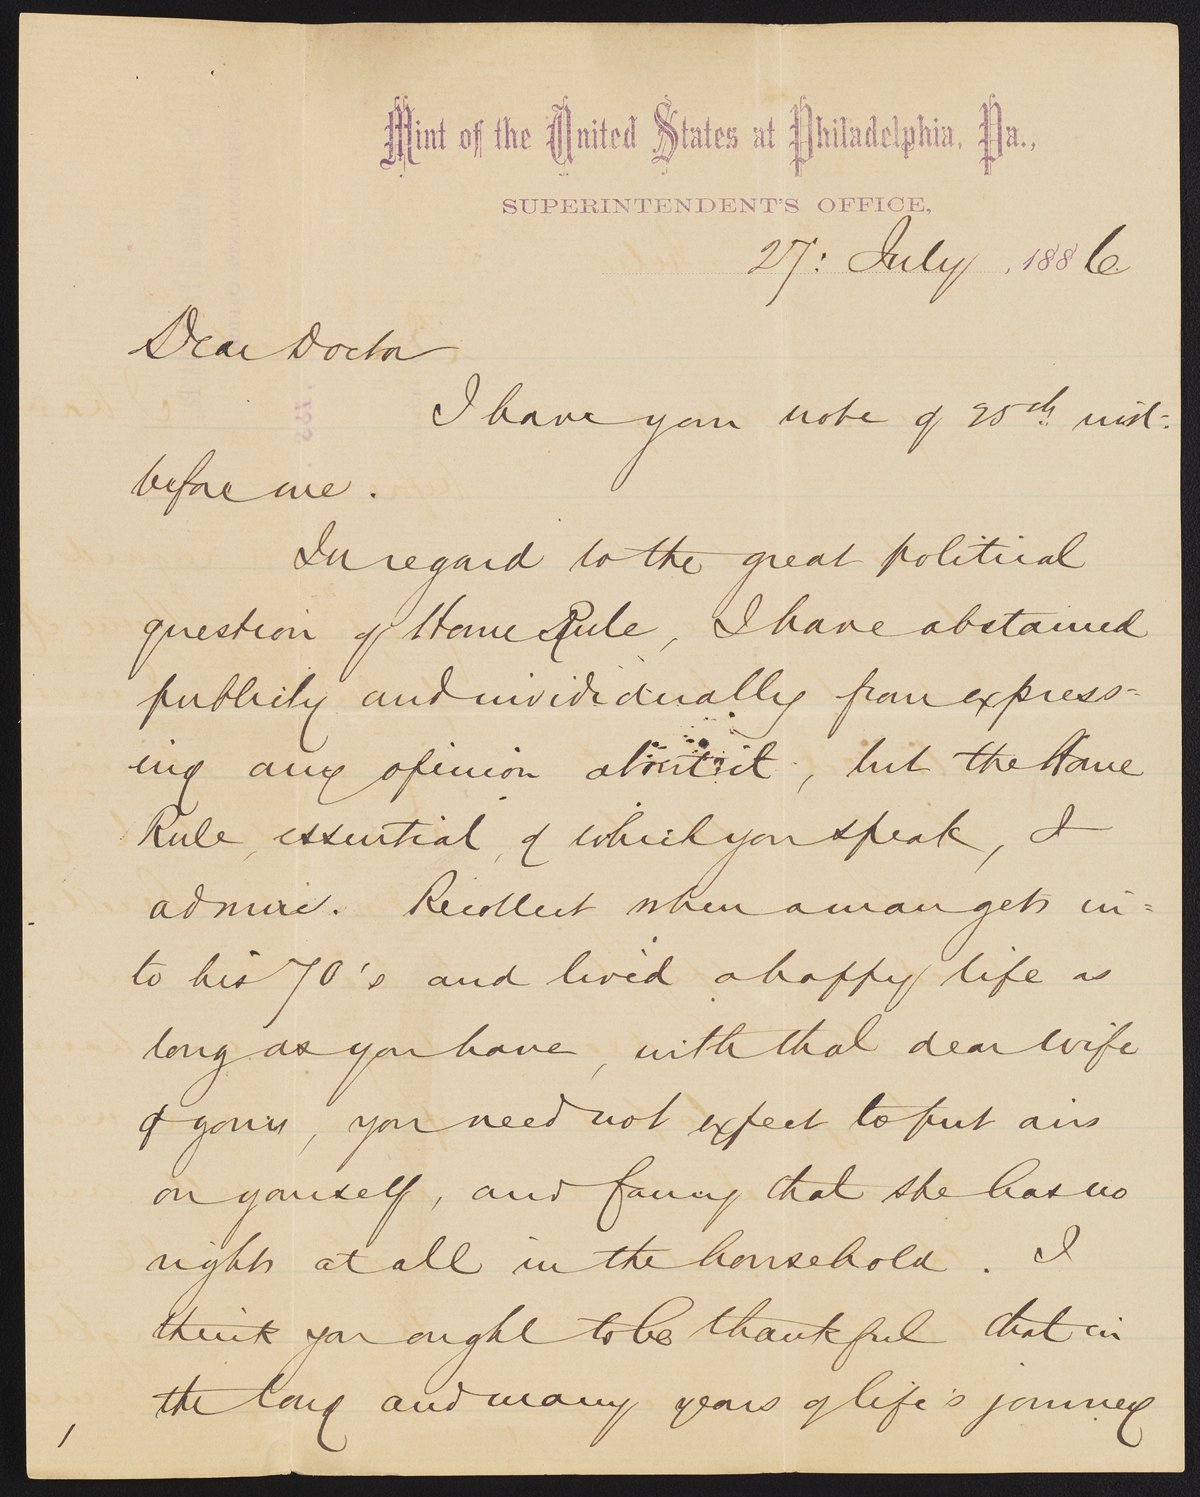 Mint of the United States at Philadelphia, Pa.,
SUPERINTENDENT'S OFFICE,
27: July, 1886
Dear Doctor
I have your note of 25th. inst:
before me.
In regard to the great political
question of Home Rule, I have abstained
publicly and individually from express-
ing any opinion about it, but the Home
Rule, essential, of which you speak, I
admire. Recollect when a man gets in=
to his 70's and lived a happy life as
long as you have, with that dear wife
of yours, you need not expect to put airs
on yourself, and fancy that she has no
rights at all in the household. I
think you ought to be thankful that in
the long and many years of life's journey
1